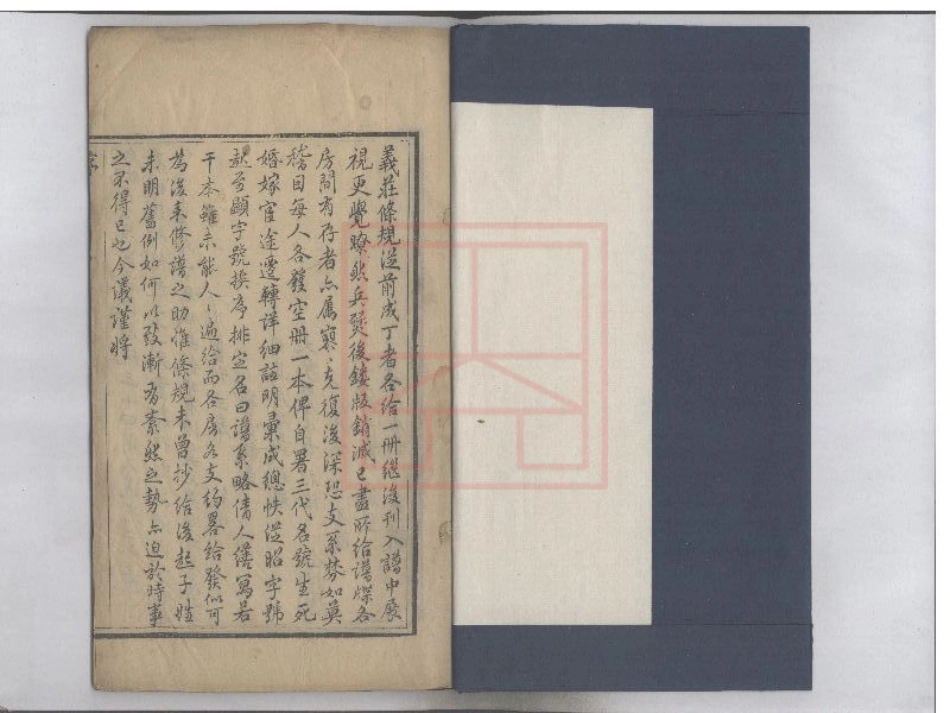 義莊條規從前成丁者各給一冊繼後刊入譜中展
視更覺瞭然兵燹後鏤版銷滅已盡所給譜牒各
房間有存者亦屬寥〻克復後深恐支系棼如莫
稽因每人各發空冊一本俾自署三代名號生死
婚嫁宦途遷轉詳細註明彙成總帙從昭字號
起至顯字號挨序排定名曰譜系略倩人繕寫若
干本雖未能人〻遍給而各房各支約畧給發似可
為後來修譜之助惟條規未曾抄給後起子姓
未明舊例如何以致漸有紊然之勢亦迫於時事
之不得已也今議謹將